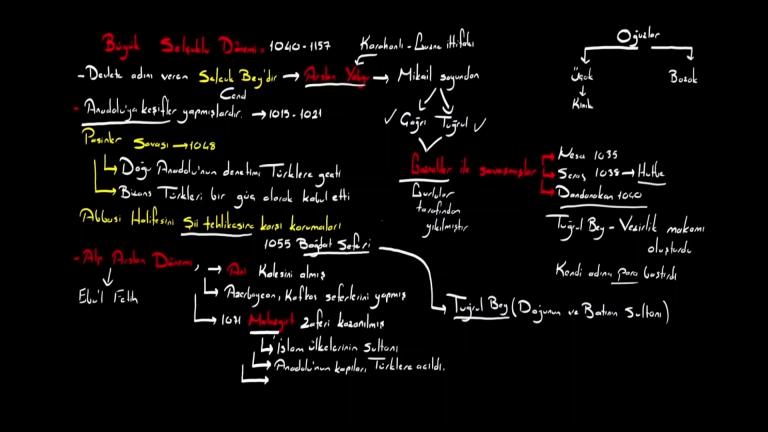 Büyük Selçuklu Dönemi = 1040-1157
Karahanlı-Gazne ittifakı
Oğuzlar
Üçok
Bozok
Kınık
- Devlete adını veren Selçuk Bey'dir → Arslan Yabgu → Mikail soyundan
Cend
✓ Çağrı Tuğrul ✓
- Anadolu'ya keşifler yapmışlardır. → 1015-1021
Pasinler Savası → 1048
Doğu Anadolu'nun denetimi Türklere geçti
Bizans Türkleri bir güç olarak kabul etti
Gazneliler ile savasmışlar
Nesa 1035
Seras 1038 → Hutbe
Dandanakan 1040
Gurlular
tarafından
yıkılmıştır
Abbasi Halifesini Şii tehlikesine karsı korumaları
1055 Bağdat Seferi
Tuğrul Bey - Vezirlik makamı
oluşturdu
Kendi adına para bastırdı
→ Tuğrul Bey (Doğunun ve Batının Sultanı)
- Alp Arslan Dönemi,
Ebu'l Feth
→ Ani Kalesini almış
Azerbaycan, Kafkas seferlerini yapmış
→ 1071 Malazgirt Zaferi kazanılmış
İslam ülkelerinin sultanı
Anadolu'nun kapıları Türklere açıldı.